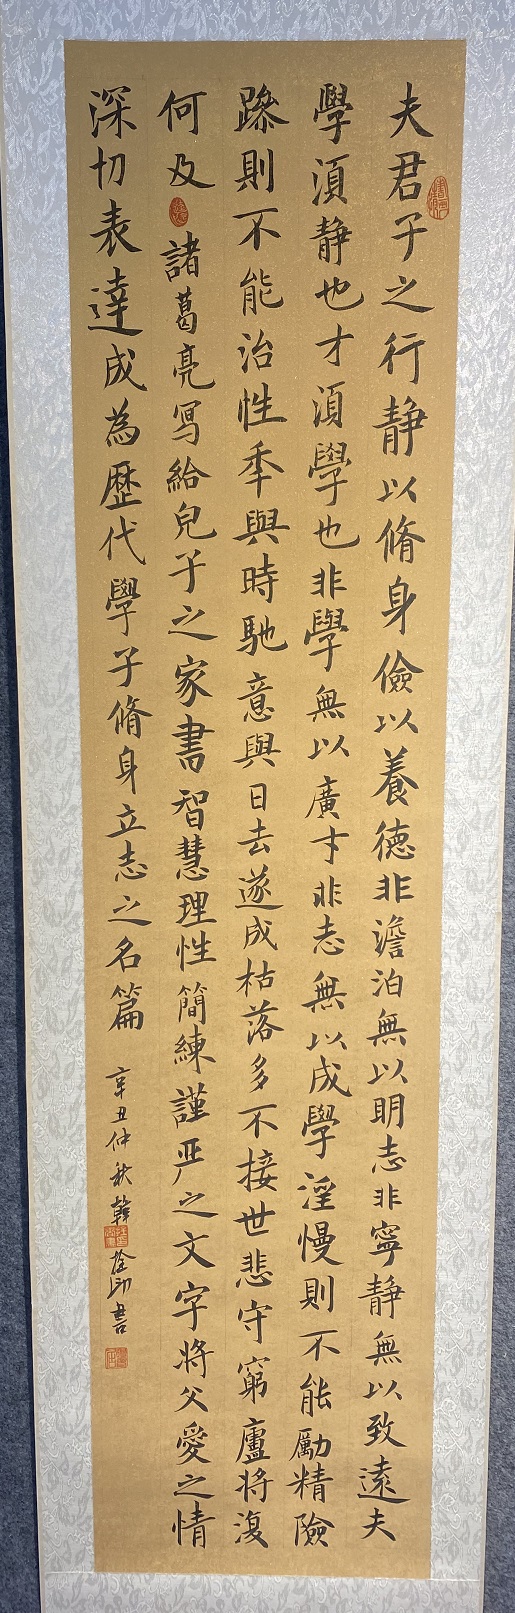 夫君子之行静以脩身儉以養德非澹泊無以明志非寧静無以致遠夫
學湏静也才湏學也非學無以廣才非志無以成學淫慢則不能勵精險
躁則不能治性秊與時馳意與日去遂成枯落多不接世悲守窮廬將復
何及 諸葛亮寫給兒子之家書智慧理性簡練謹严之文字將父愛之情
深切表達成為歷代學子脩身立志之名篇 辛丑仲秋韓書